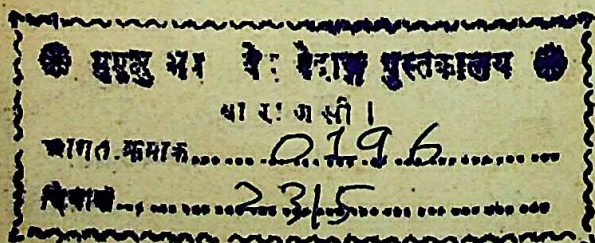 मुमुक्षु भवन वेद वेदाङ्ग पुस्तकालय
वा रा णसी ।
आगत क्रमांक........0196........
दिनांक........23/5........